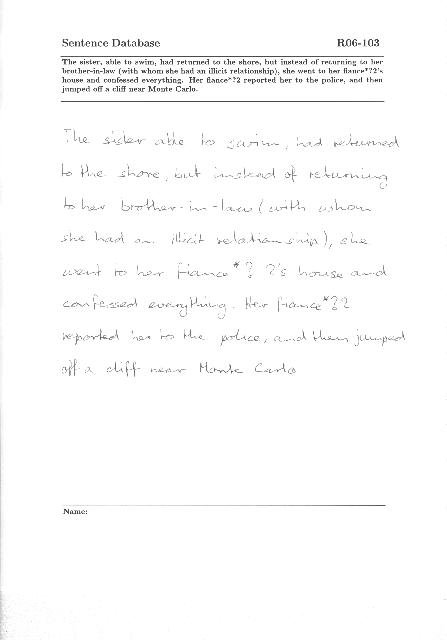 Sentence Database R06-103
The sister, able to swim, had returned to the shore, but instead of returning to her
brother-in-law (with whom she had an illicit relationship), she went to her fiance*?2's
house and confessed everything. Her fiance*?2 reported her to the police, and then
jumped off a cliff near Monte Carlo.
The sister able to swim, had returned
to the shore, but instead of returning
to her brother-in-law (with whom
she had an illicit relationship), she
went to her fiance*? 2's house and
confessed everything. Her fiance*?2
reported her to the police, and then jumped
off a cliff near Monte Carlo
Name: